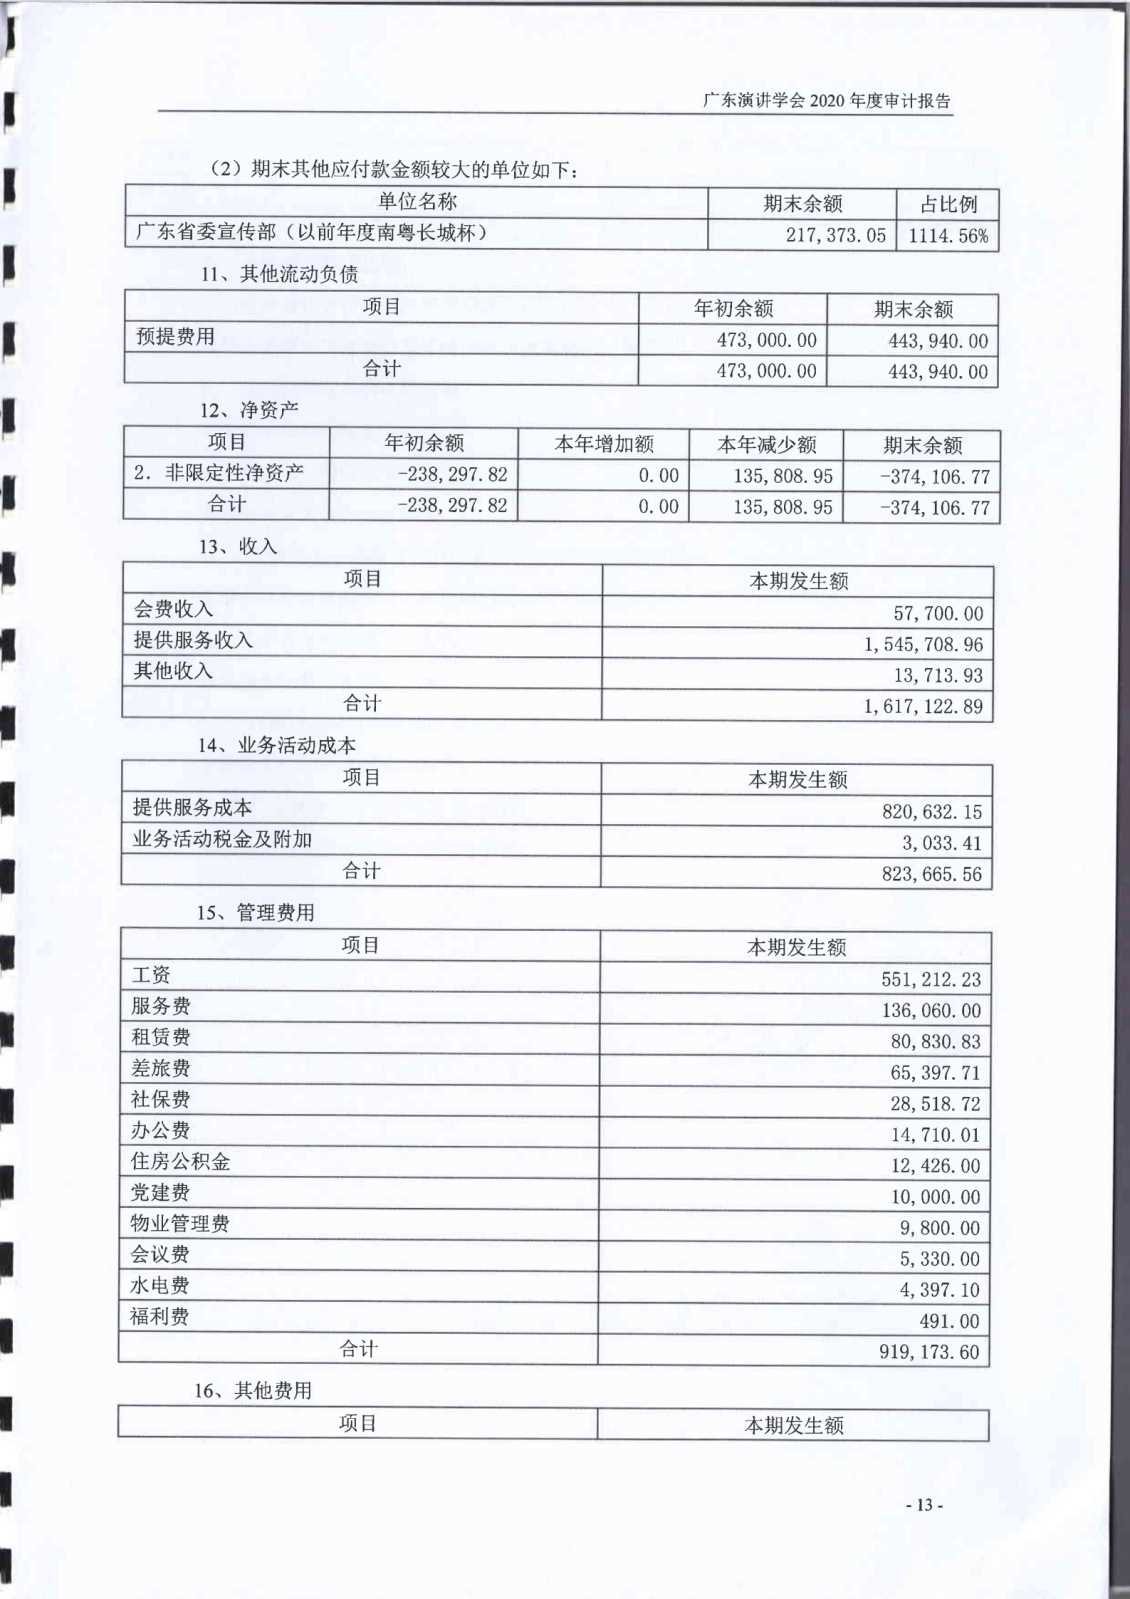 广东演讲学会 2020 年度审计报告
（2）期末其他应付款金额较大的单位如下：
单位名称 期末余额 占比例
广东省委宣传部（以前年度南粤长城杯） 217,373.05 1114.56%
11、其他流动负债
项目 年初余额 期末余额
预提费用 473,000.00 443,940.00
合计 473,000.00 443,940.00
12、净资产
项目 年初余额 本年增加额 本年减少额 期末余额
2. 非限定性净资产 -238,297.82 0.00 135,808.95 -374,106.77
合计 -238,297.82 0.00 135,808.95 -374,106.77
13、收入
项目 本期发生额
会费收入 57,700.00
提供服务收入 1,545,708.96
其他收入 13,713.93
合计 1,617,122.89
14、业务活动成本
项目 本期发生额
提供服务成本 820,632.15
业务活动税金及附加 3,033.41
合计 823,665.56
15、管理费用
项目 本期发生额
工资 551,212.23
服务费 136,060.00
租赁费 80,830.83
差旅费 65,397.71
社保费 28,518.72
办公费 14,710.01
住房公积金 12,426.00
党建费 10,000.00
物业管理费 9,800.00
会议费 5,330.00
水电费 4,397.10
福利费 491.00
合计 919,173.60
16、其他费用
项目 本期发生额
- 13 -